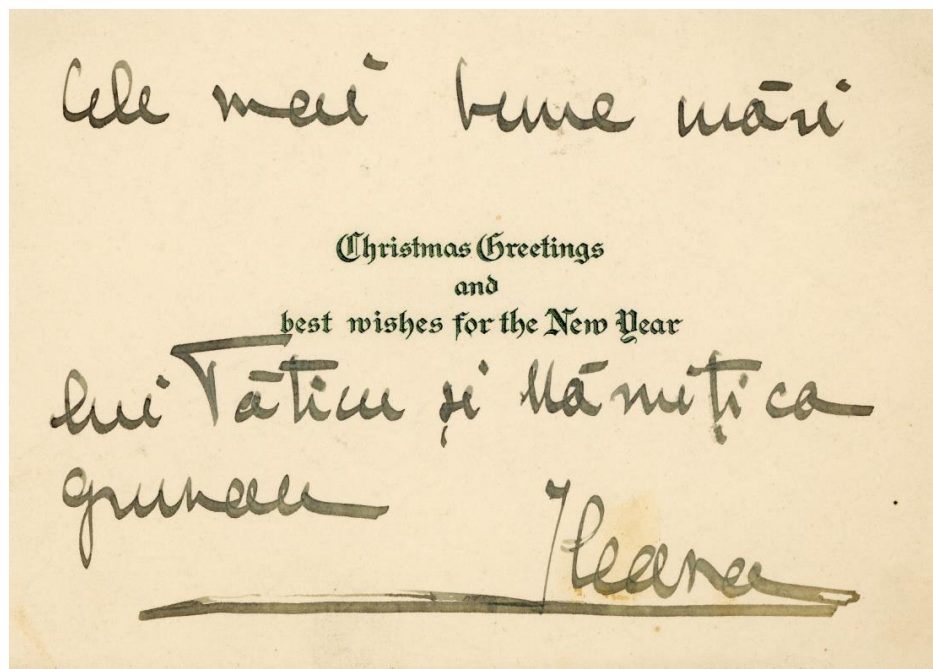 Cele mai bune urări
Christmas Greetings
and
best wishes for the New Year
lui Tăticu și Mămițica
Ileana